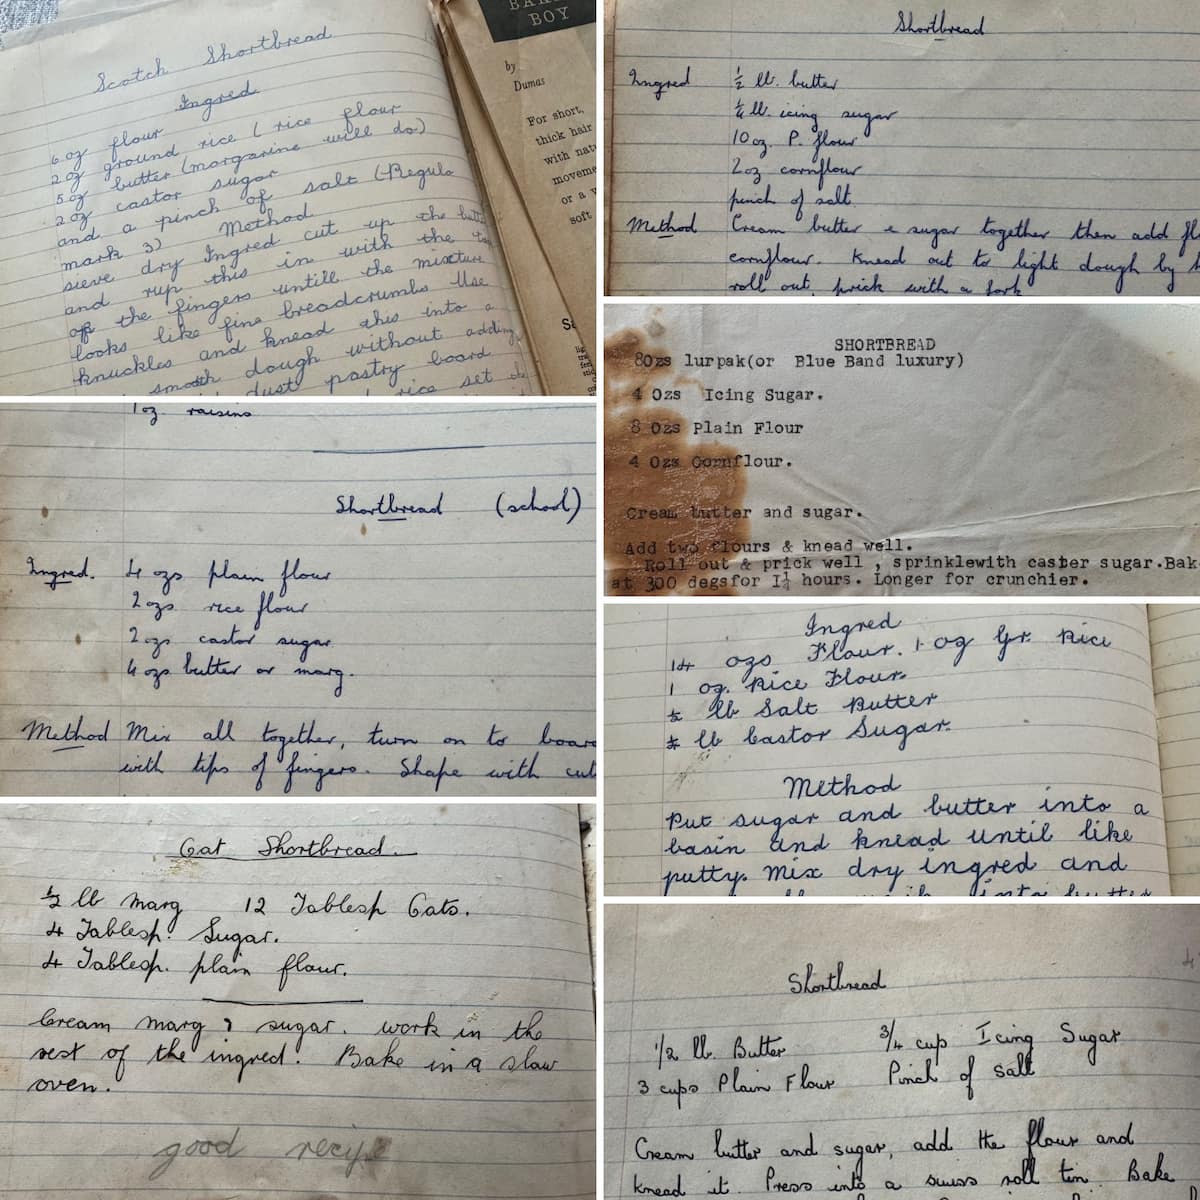 Scotch Shortbread
Ingred
6 oz flour
2 oz ground rice ( rice flour
5 oz butter (margarine will do)
2 oz castor sugar
and a pinch of salt (Regulo
mark 3) Method
sieve dry Ingred cut up the butt
and rup this in with the
of the fingers untill the mixture
looks like fine breadcrumbs Use
knuckles and knead this into a
smooth dough without adding
dust pastry board
rice set
BOY
by
Dumas
For short,
thick hair
with nat
moveme
or a
soft
Shortbread
Ingred ½ lb. butter
¼ lb. icing sugar
10 oz. P. flour
2 oz cornflour
pinch of salt.
Method Cream butter & sugar together then add fl
cornflour. Knead out to light dough by
roll out, prick with a fork
SHORTBREAD
8Ozs lurpak(or Blue Band luxury)
4 Ozs Icing Sugar.
8 Ozs Plain Flour
4 Ozs Cornflour.
Cream butter and sugar.
Add two flours & knead well.
Roll out & prick well , sprinklewith caster sugar.Bak
at 300 degsfor 1¼ hours. Longer for crunchier.
1oz raisins
Shortbread (school)
Ingred. 4 ozs plain flour
2 ozs rice flour
2 ozs castor sugar
4 ozs butter or marg.
Method Mix all together, turn on to board
with tips of fingers. Shape with cut
Ingred
14 ozs Flour. 1 oz Gr. Rice
1 oz. Rice Flour
½ lb Salt Butter
lb Castor Sugar.
Method
Put sugar and butter into a
basin and knead until like
putty. mix dry ingred and
into butter
Oat Shortbread.
½ lb marg 12 Tablesp Oats.
4 Tablesp. Sugar.
4 Tablesp. plain flour.
Cream marg & sugar. work in the
rest of the ingred. Bake in a slow
oven.
good recipe
Shortbread
1/2 lb. Butter 3/4 cup Icing Sugar
3 cups Plain Flour Pinch of salt
Cream butter and sugar, add the flour and
knead it. Press into a swiss roll tin. Bake